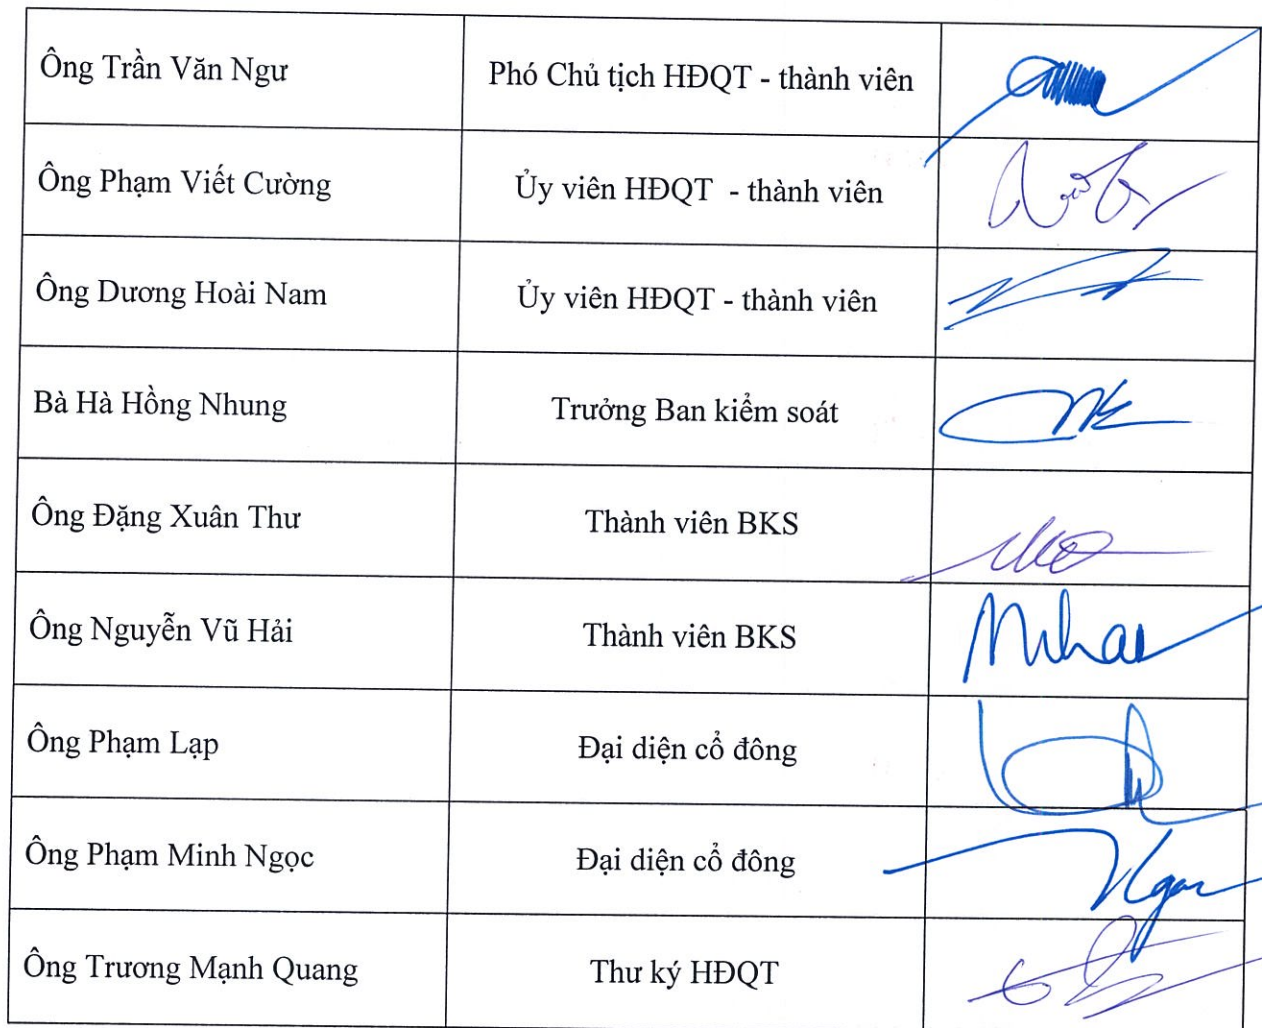 Ông Trần Văn Ngư
Phó Chủ tịch HĐQT - thành viên
Ông Phạm Viết Cường
Ủy viên HĐQT - thành viên
Ông Dương Hoài Nam
Ủy viên HĐQT - thành viên
Bà Hà Hồng Nhung
Trưởng Ban kiểm soát
Ông Đặng Xuân Thư
Thành viên BKS
Ông Nguyễn Vũ Hải
Thành viên BKS
Ông Phạm Lạp
Đại diện cổ đông
Ông Phạm Minh Ngọc
Đại diện cổ đông
Ông Trương Mạnh Quang
Thư ký HĐQT